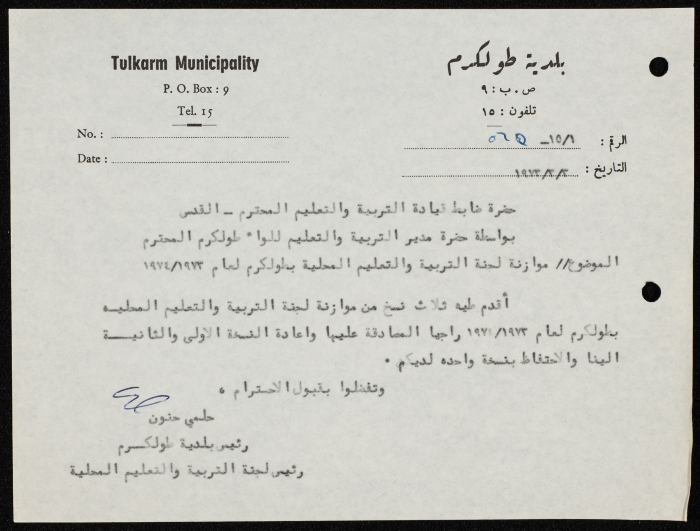 Tulkarm Municipality
P. O. Box : 9
Tel. 15
No. :
Date :
بلدية طولكرم
ص . ب : ٩
تلفون : ١٥
الرقم : ١٥/١ـ
التاريخ : ١٩٧٣/٣/٣
حضرة ضابط قيادة التربية والتعليم المحترم ــ القدس
بواسطة حضرة مدير التربية والتعليم للواء طولكرم المحترم
الموضوع// موازنة لجنة التربية والتعليم المحلية بطولكرم لعام ١٩٧٤/١٩٧٣
أقدم طيه ثلاث نسخ من موازنة لجنة التربية والتعليم المحليه
بطولكرم لعام ١٩٧٤/١٩٧٣ راجيا المصادقة عليها واعادة النسخة الاولى والثانيـــة
الينا والاحتفاظ بنسخة واحده لديكم .
وتفضلوا بقبول الاحترام ،
حلمي حنون
رئيس بلدية طولكـرم
رئيس لجنة التربية والتعليم المحلية